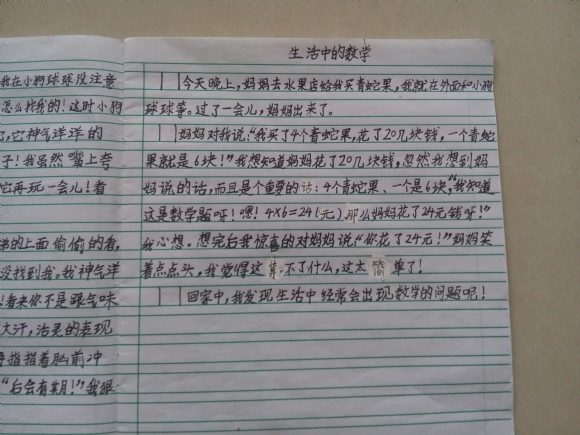 我在小狗球球没注意
怎么找我的！这时小狗
它，它神气洋洋的
子！我虽然嘴上夸
它再玩一会儿！看
的上面偷偷的看，
没找到我。我神气洋
！看来你不是跟气味
大汗，活灵的表现
指指着胸前冲
“后会有期！”我狠
生活中的数学
今天晚上，妈妈去水果店给我买青蛇果，我就在外面和小狗
球球等。过了一会儿，妈妈出来了。
妈妈对我说：“我买了4个青蛇果，花了20几块钱，一个青蛇
果就是6块！”我想知道妈妈花了20几块钱，忽然我想到妈
妈说的话，而且是个重要的话：4个青蛇果、一个是6块，“我知道
这是数学题呀！嗯！4×6=24（元），那么妈妈花了24元钱呀！”
我心想。想完后我惊喜的对妈妈说：“你花了24元！”妈妈笑
着点点头，我觉得这算不了什么，这太简单了！
回家中，我发现生活中经常会出现数学的问题呢！